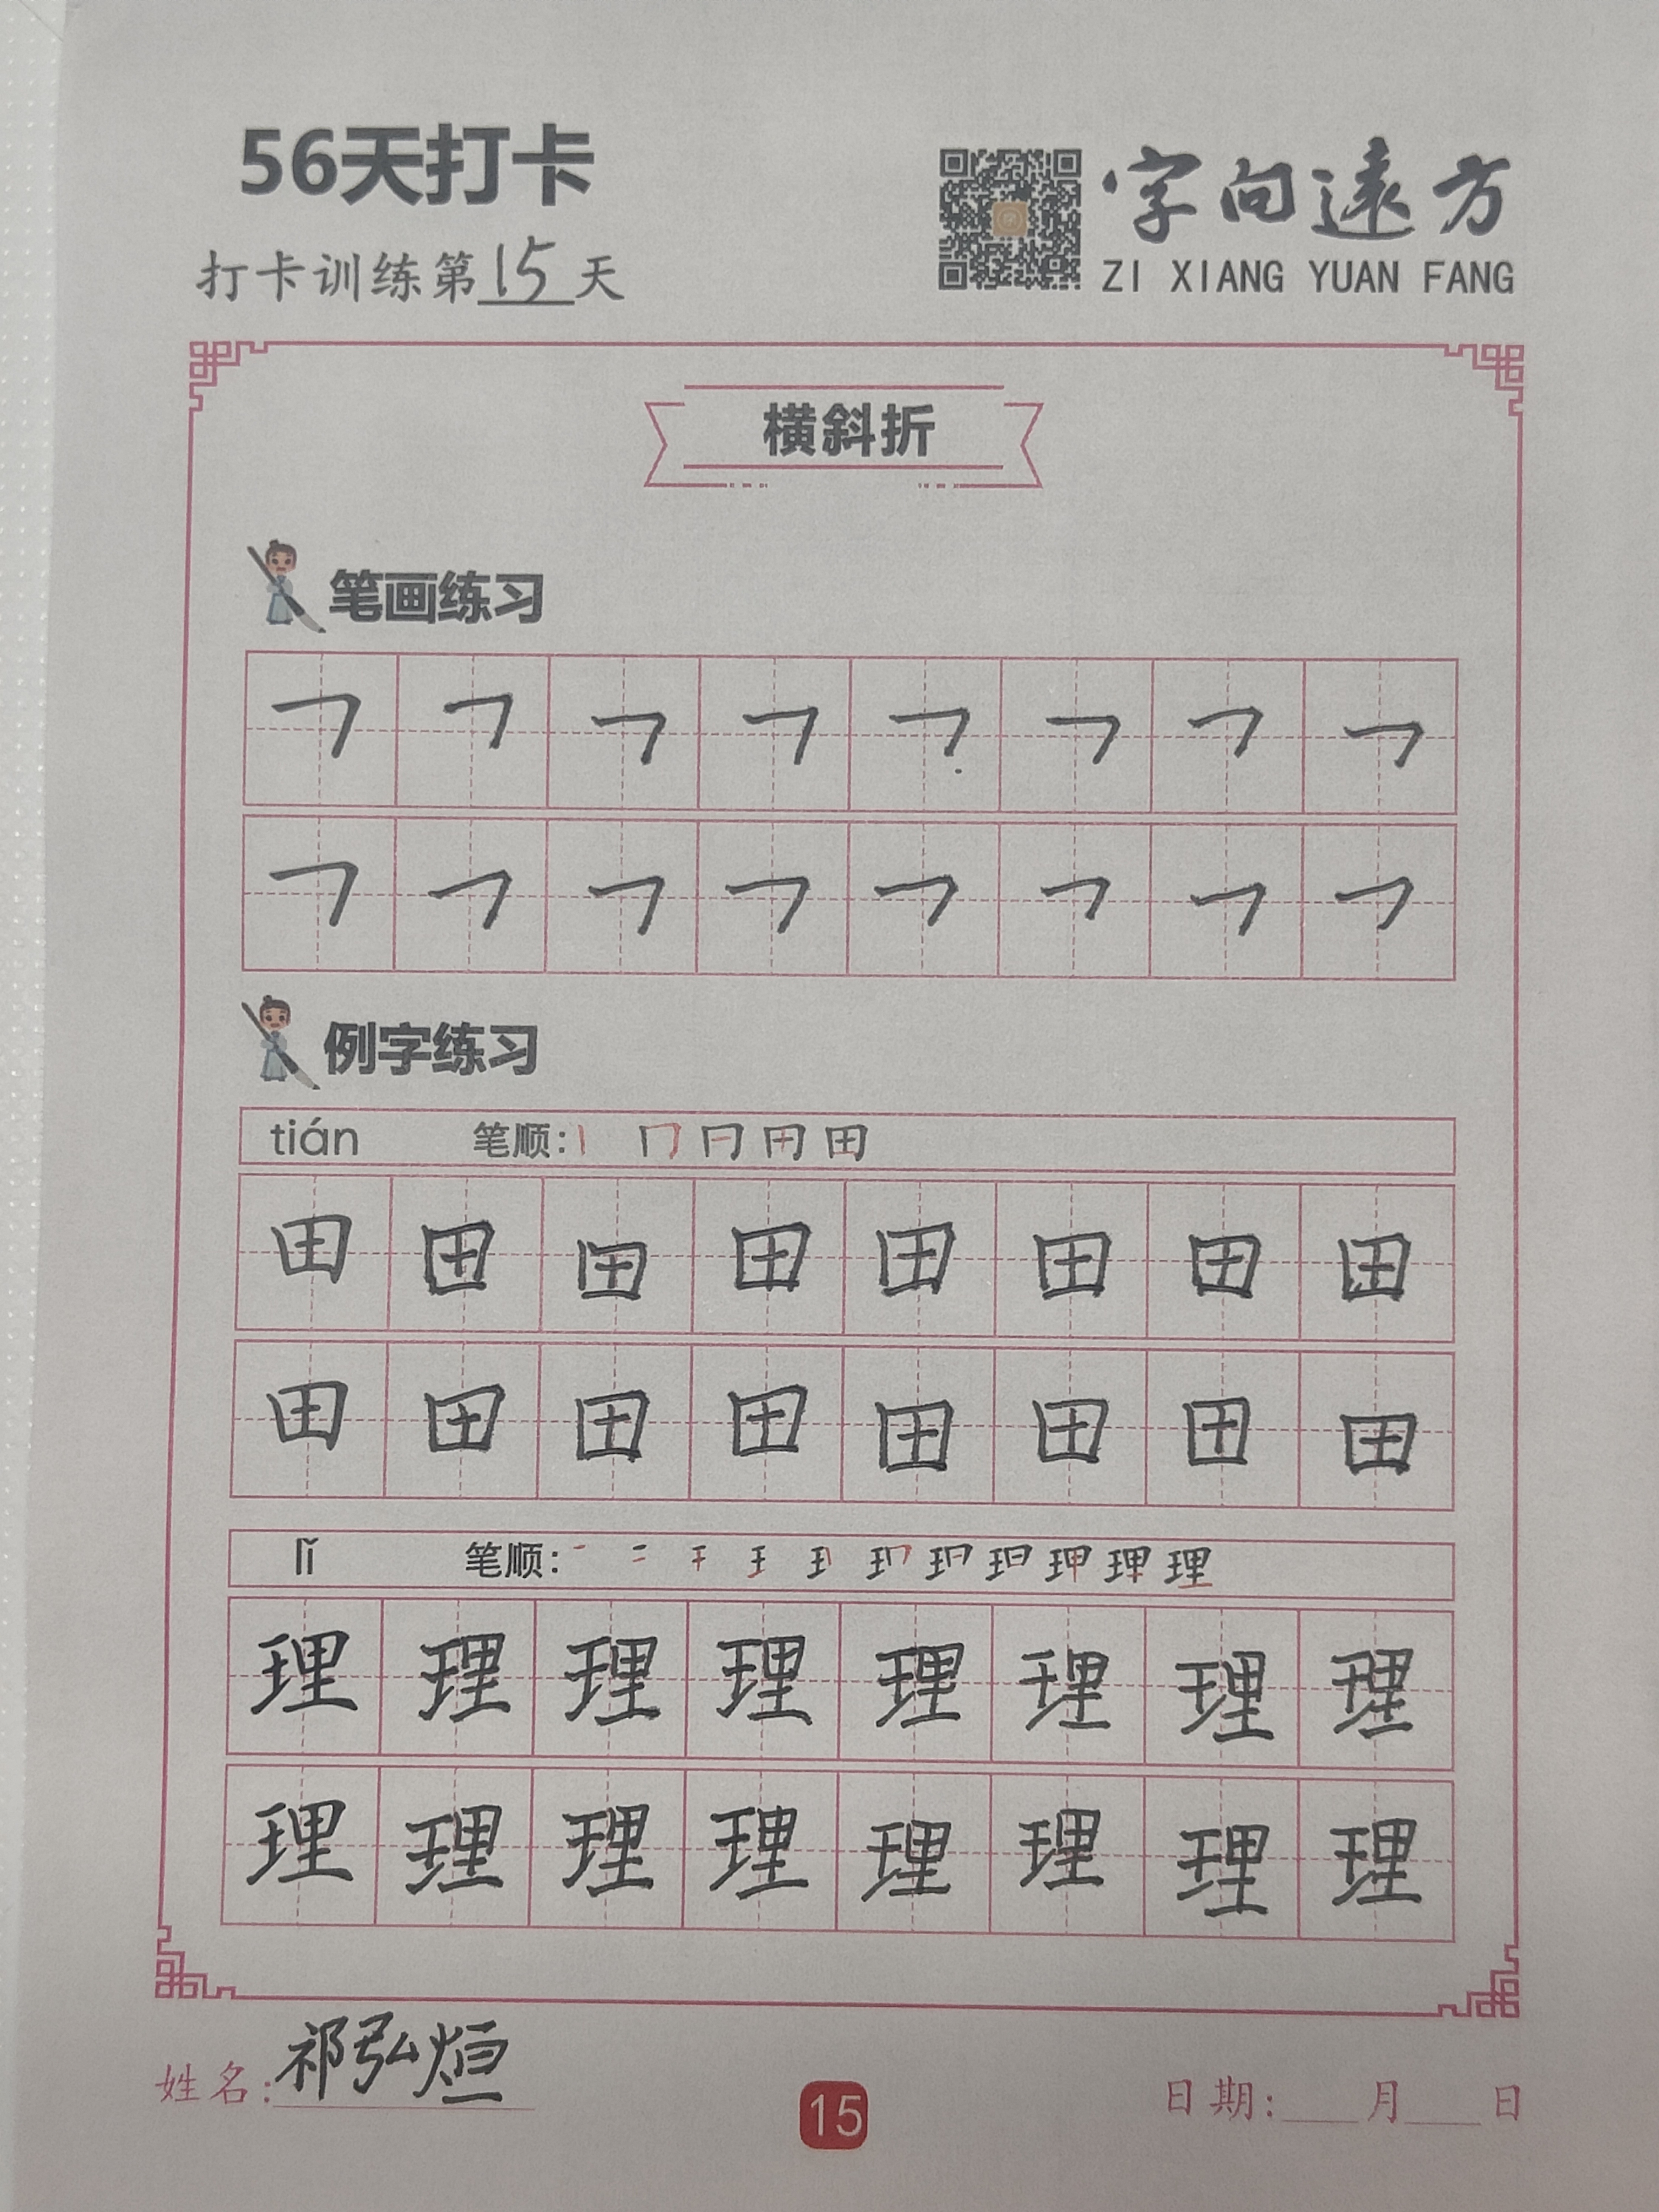 56天打卡
字向遠方
打卡训练第15天
ZI XIANG YUAN FANG
横斜折
笔画练习
㇆ ㇆ ㇆ ㇆ ㇆ ㇆ ㇆ ㇆
㇆ ㇆ ㇆ ㇆ ㇆ ㇆ ㇆ ㇆
例字练习
tián 笔顺: 丨 冂 冃 田 田
田 田 田 田 田 田 田 田
田 田 田 田 田 田 田 田
lǐ 笔顺: 理
理 理 理 理 理 理 理 理
理 理 理 理 理 理 理 理
姓名: 祁弘烜
15
日期: 月 日